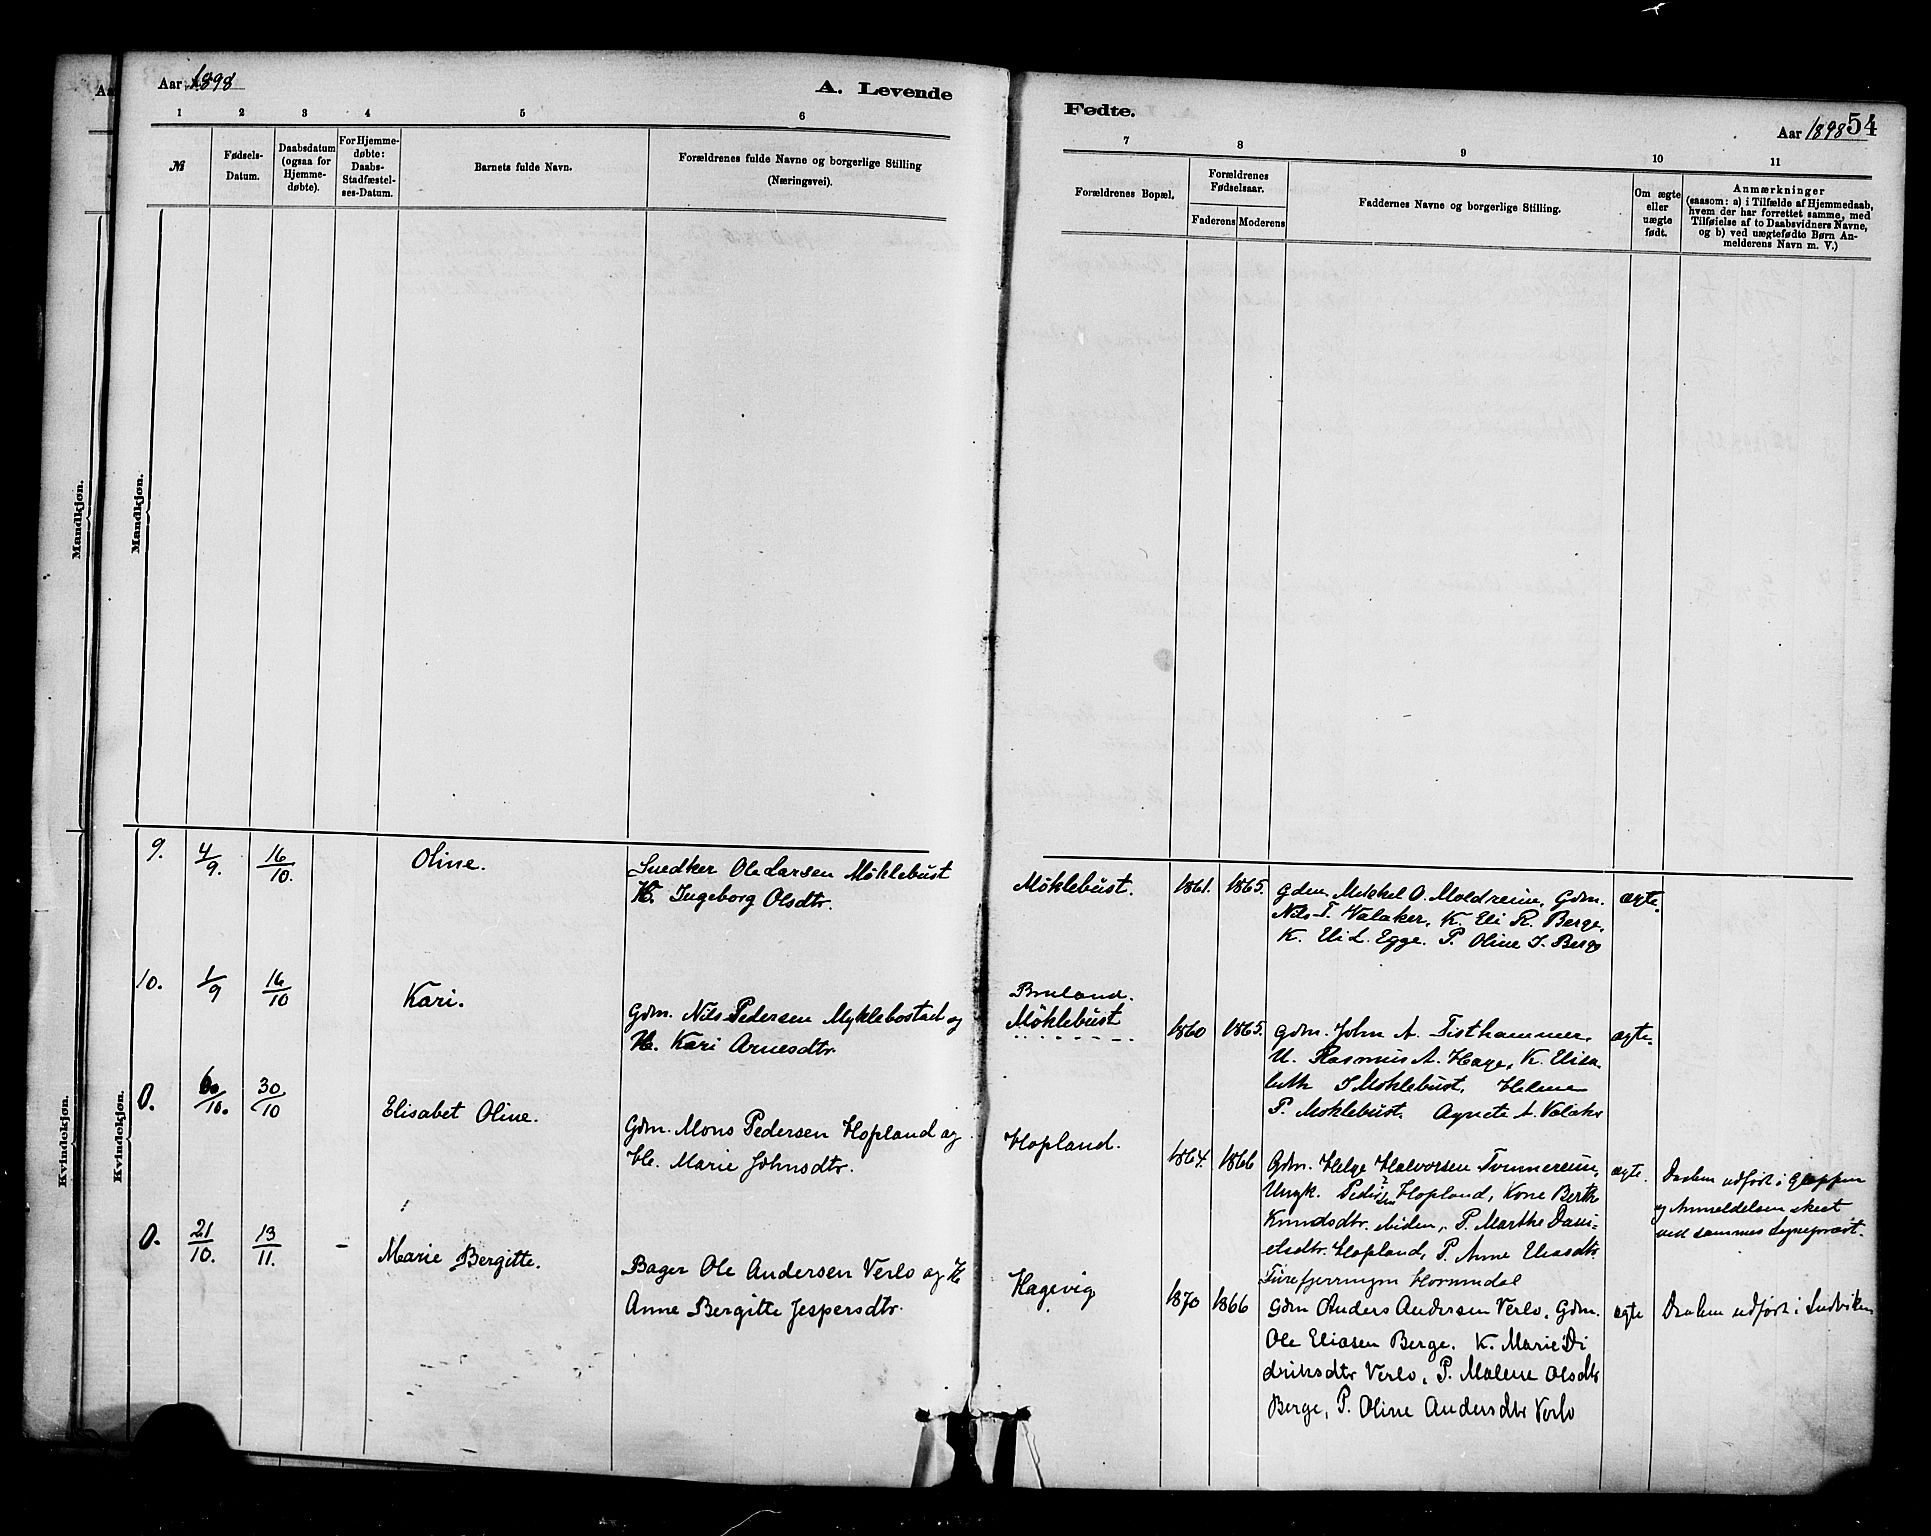 Aar 1898
A. Levende
Fødte.
Aar 1898 54
1 2 3 4 5 6
7 8 9 10 11
№
Fødsels-
Datum.
Daabsdatum
(ogsaa for
Hjemme-
døbte).
For Hjemme-
døbte:
Daabs-
Stadfæstel-
ses-Datum.
Barnets fulde Navn.
Forældrenes fulde Navne og borgerlige Stilling
(Næringsvei).
Forældrenes Bopæl.
Forældrenes
Fødselsaar.
Faderens Moderens
Faddernes Navne og borgerlige Stilling.
Om ægte
eller
uægte
født.
Anmærkninger
(saasom: a) i Tilfælde af Hjemmedaab,
hvem der har forrettet samme, med
Tilføielse af to Daabsvidners Navne,
og b) ved uægtefødte Børn An-
melderens Navn m. V.)
Mandkjøn.
Mandkjøn.
Kvindekjøn.
Kvindekjøn.
9. 4/9. 16/10. Oline.
Snedker Ole Larsen Möklebust
H. Ingeborg Olsdtr.
Möklebust. 1861. 1865.
Gdm. Mikkel O. Moldreim, Gdm.
Nils T. Valaker, K. Eli R. Berge,
K. Eli L. Egge. P. Oline J. Berge
ægte.
10. 1/9 16/10 Kari.
Gdm. Nils Pedersen Myklebostad og
H. Kari Arnesdtr.
Bruland.
Möklebust
1860 1865.
Gdm. John A. Tisthammer,
U. Rasmus A. Hage, K. Elisa-
beth J Möklebust, Helene
P. Möklebust. Agnete A. Valaker
ægte.
0. 6/10. 30/10 Elisabet Oline.
Gdm. Mons Pedersen Hopland og
H. Marie Johnsdtr.
Hopland. 1864. 1866
Gdm. Helge Halvorsen Tommereim,
Ungk. Peder Hopland, Kone Berthe
Knudsdtr. Niden, P. Marthe Dani-
elsdtr. Hopland, P. Anne Eliasdtr
Hornindal
ægte.
Daaben udført i Gloppen
og Anmeldelsen skeet
ved sammes Sogneprest.
0. 21/10. 13/11. - Marie Bergitte.
Bager Ole Andersen Verlo og H
Anne Bergitte Jespersdtr.
Hagevig 1870 1866
Gdm Anders Andersen Verlo, Gdm.
Ole Eliasen Berge. K. Marie Di
driksdtr Verlo, P. Malene Olsdtr
Berge, P. Oline Andersdtr Verlo
ægte
Daaben udført i Indviken